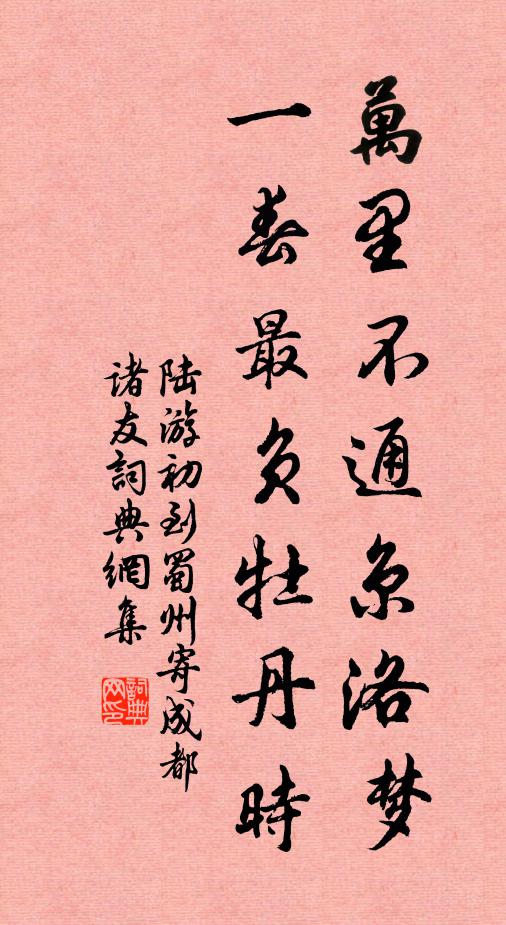 萬里不通京洛梦
一春最负牡丹時
陆游初到蜀州寄成都
诸友詞典網集
詞典
网印